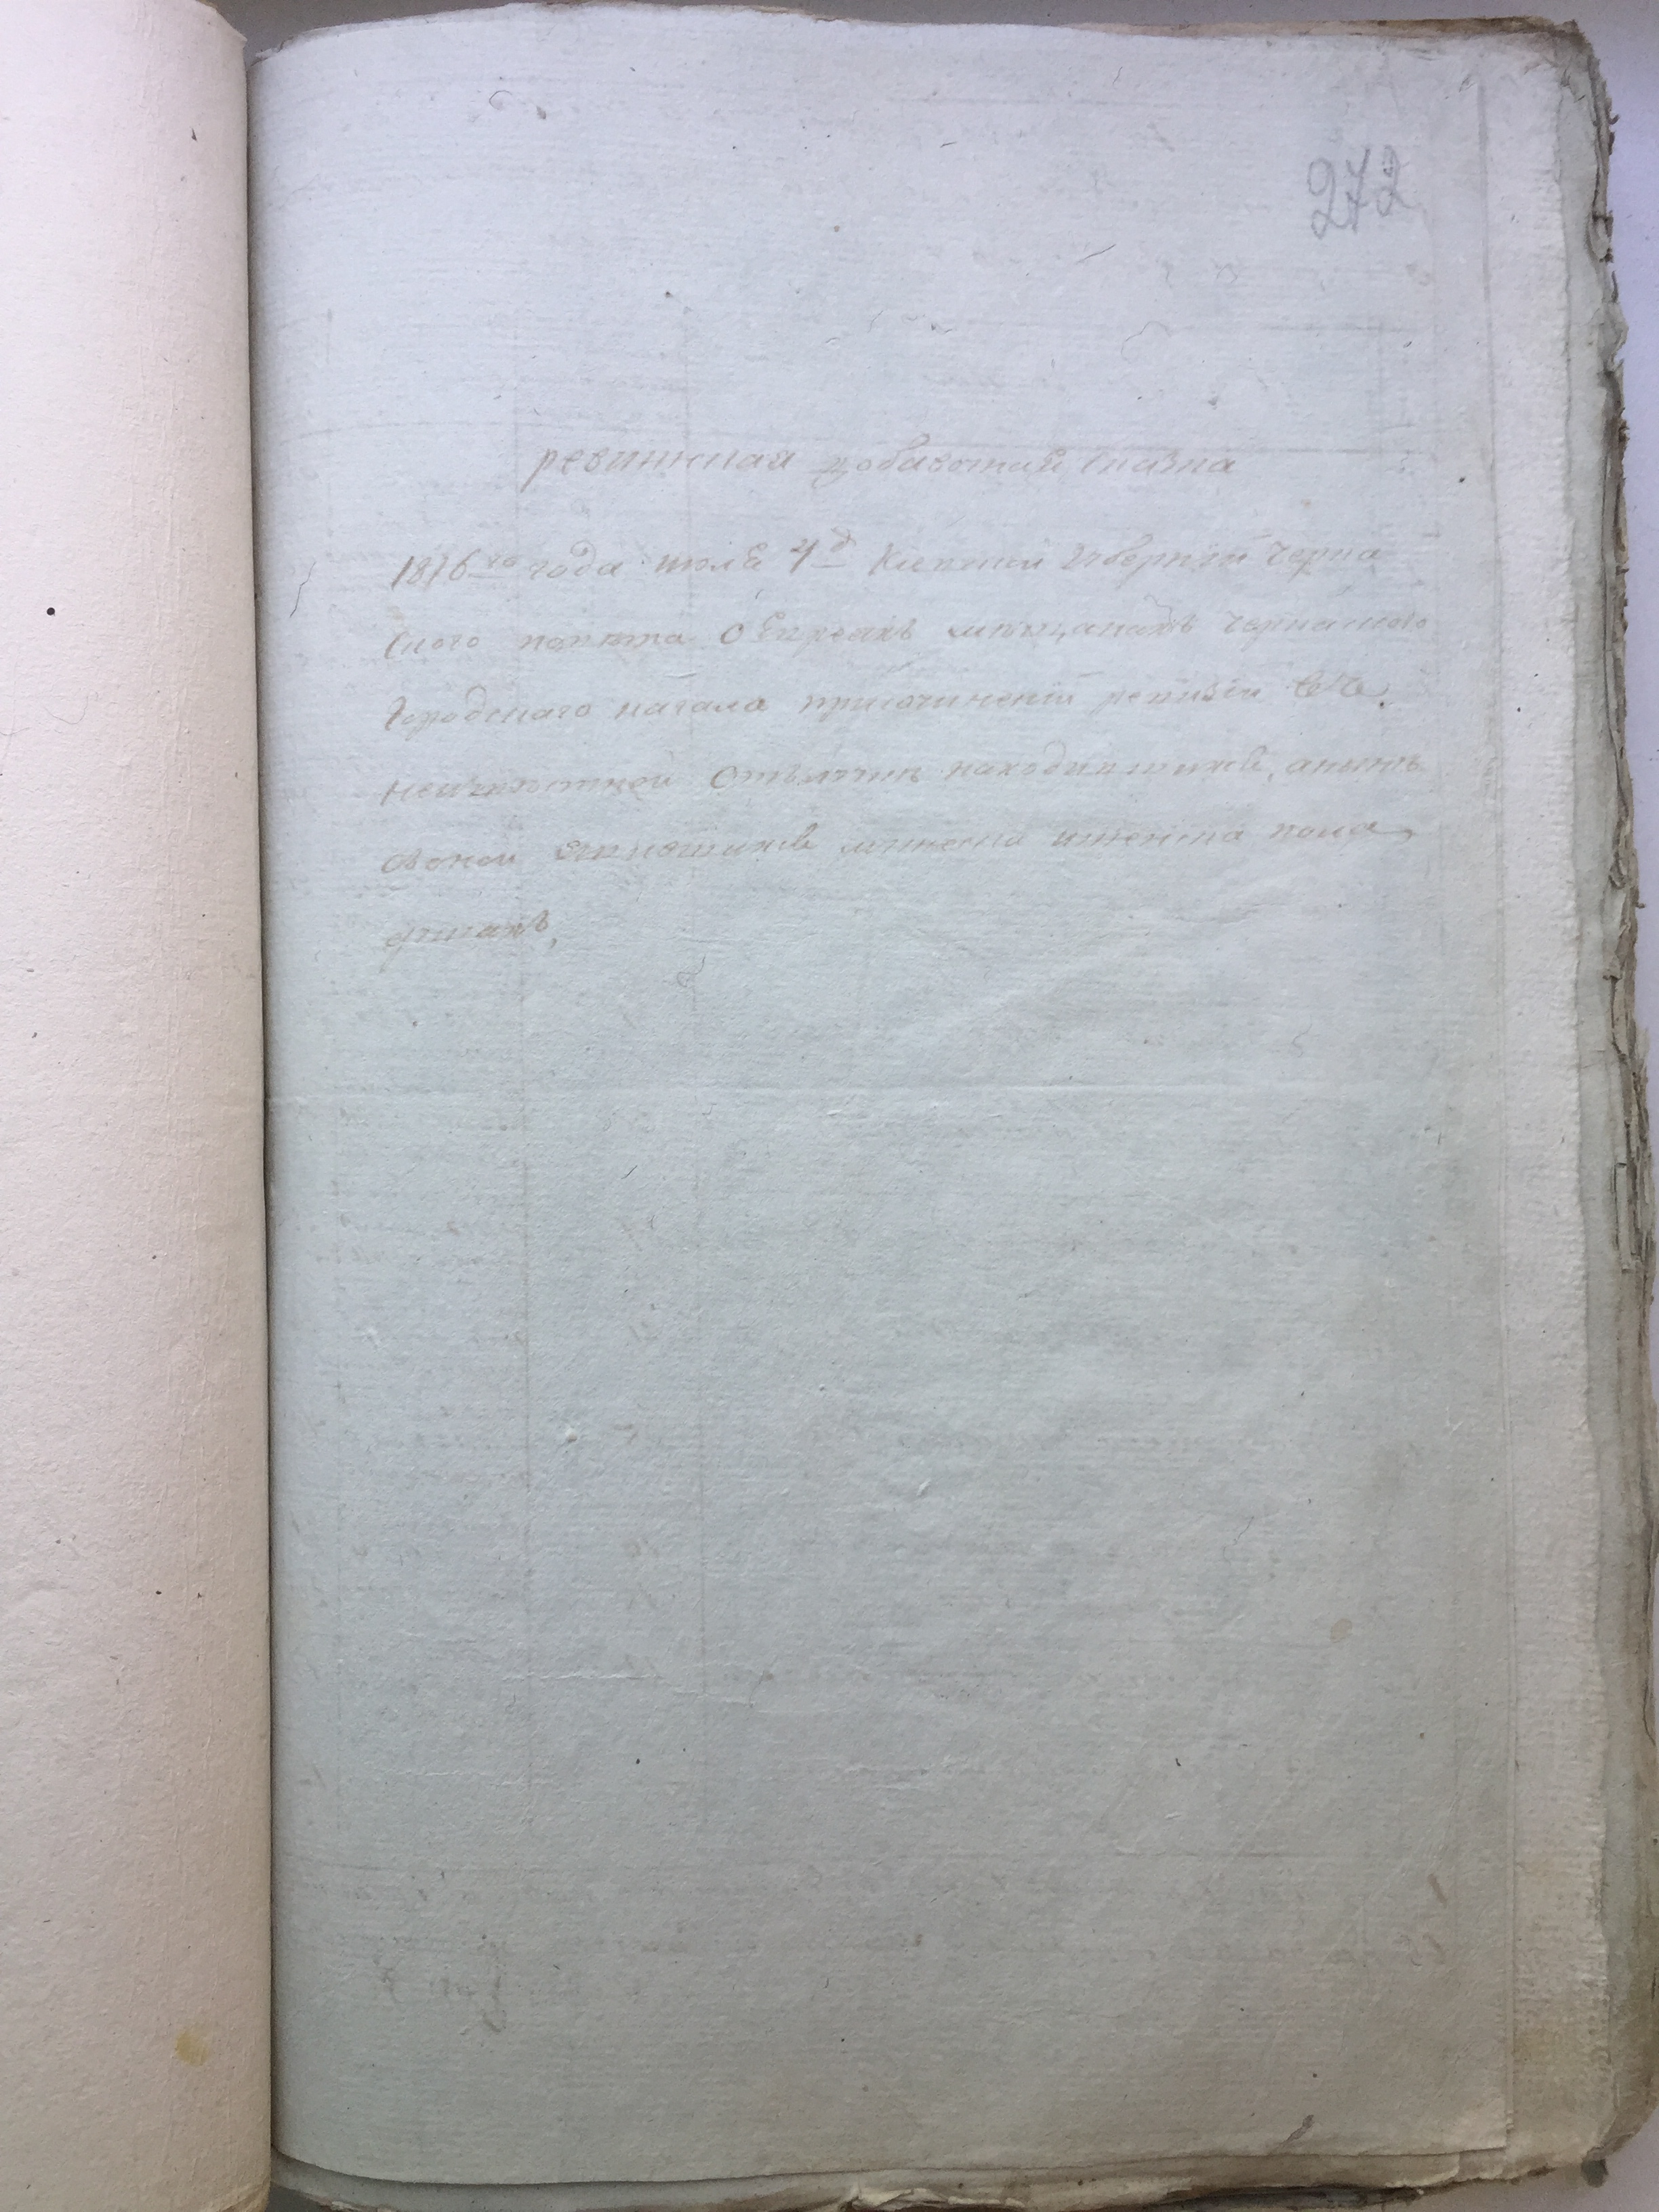 272
ревижная добавочная сказка
1816го года июля 4д Киевской Губернїи Черка
ского повета О Евреяхъ мещанахъ Черкаского
Городского кагала при сочинении ревизїи
неизвестной Отлучки находившихся, а нынѣ
оной явившихся мужеска и женска пола
душахъ,